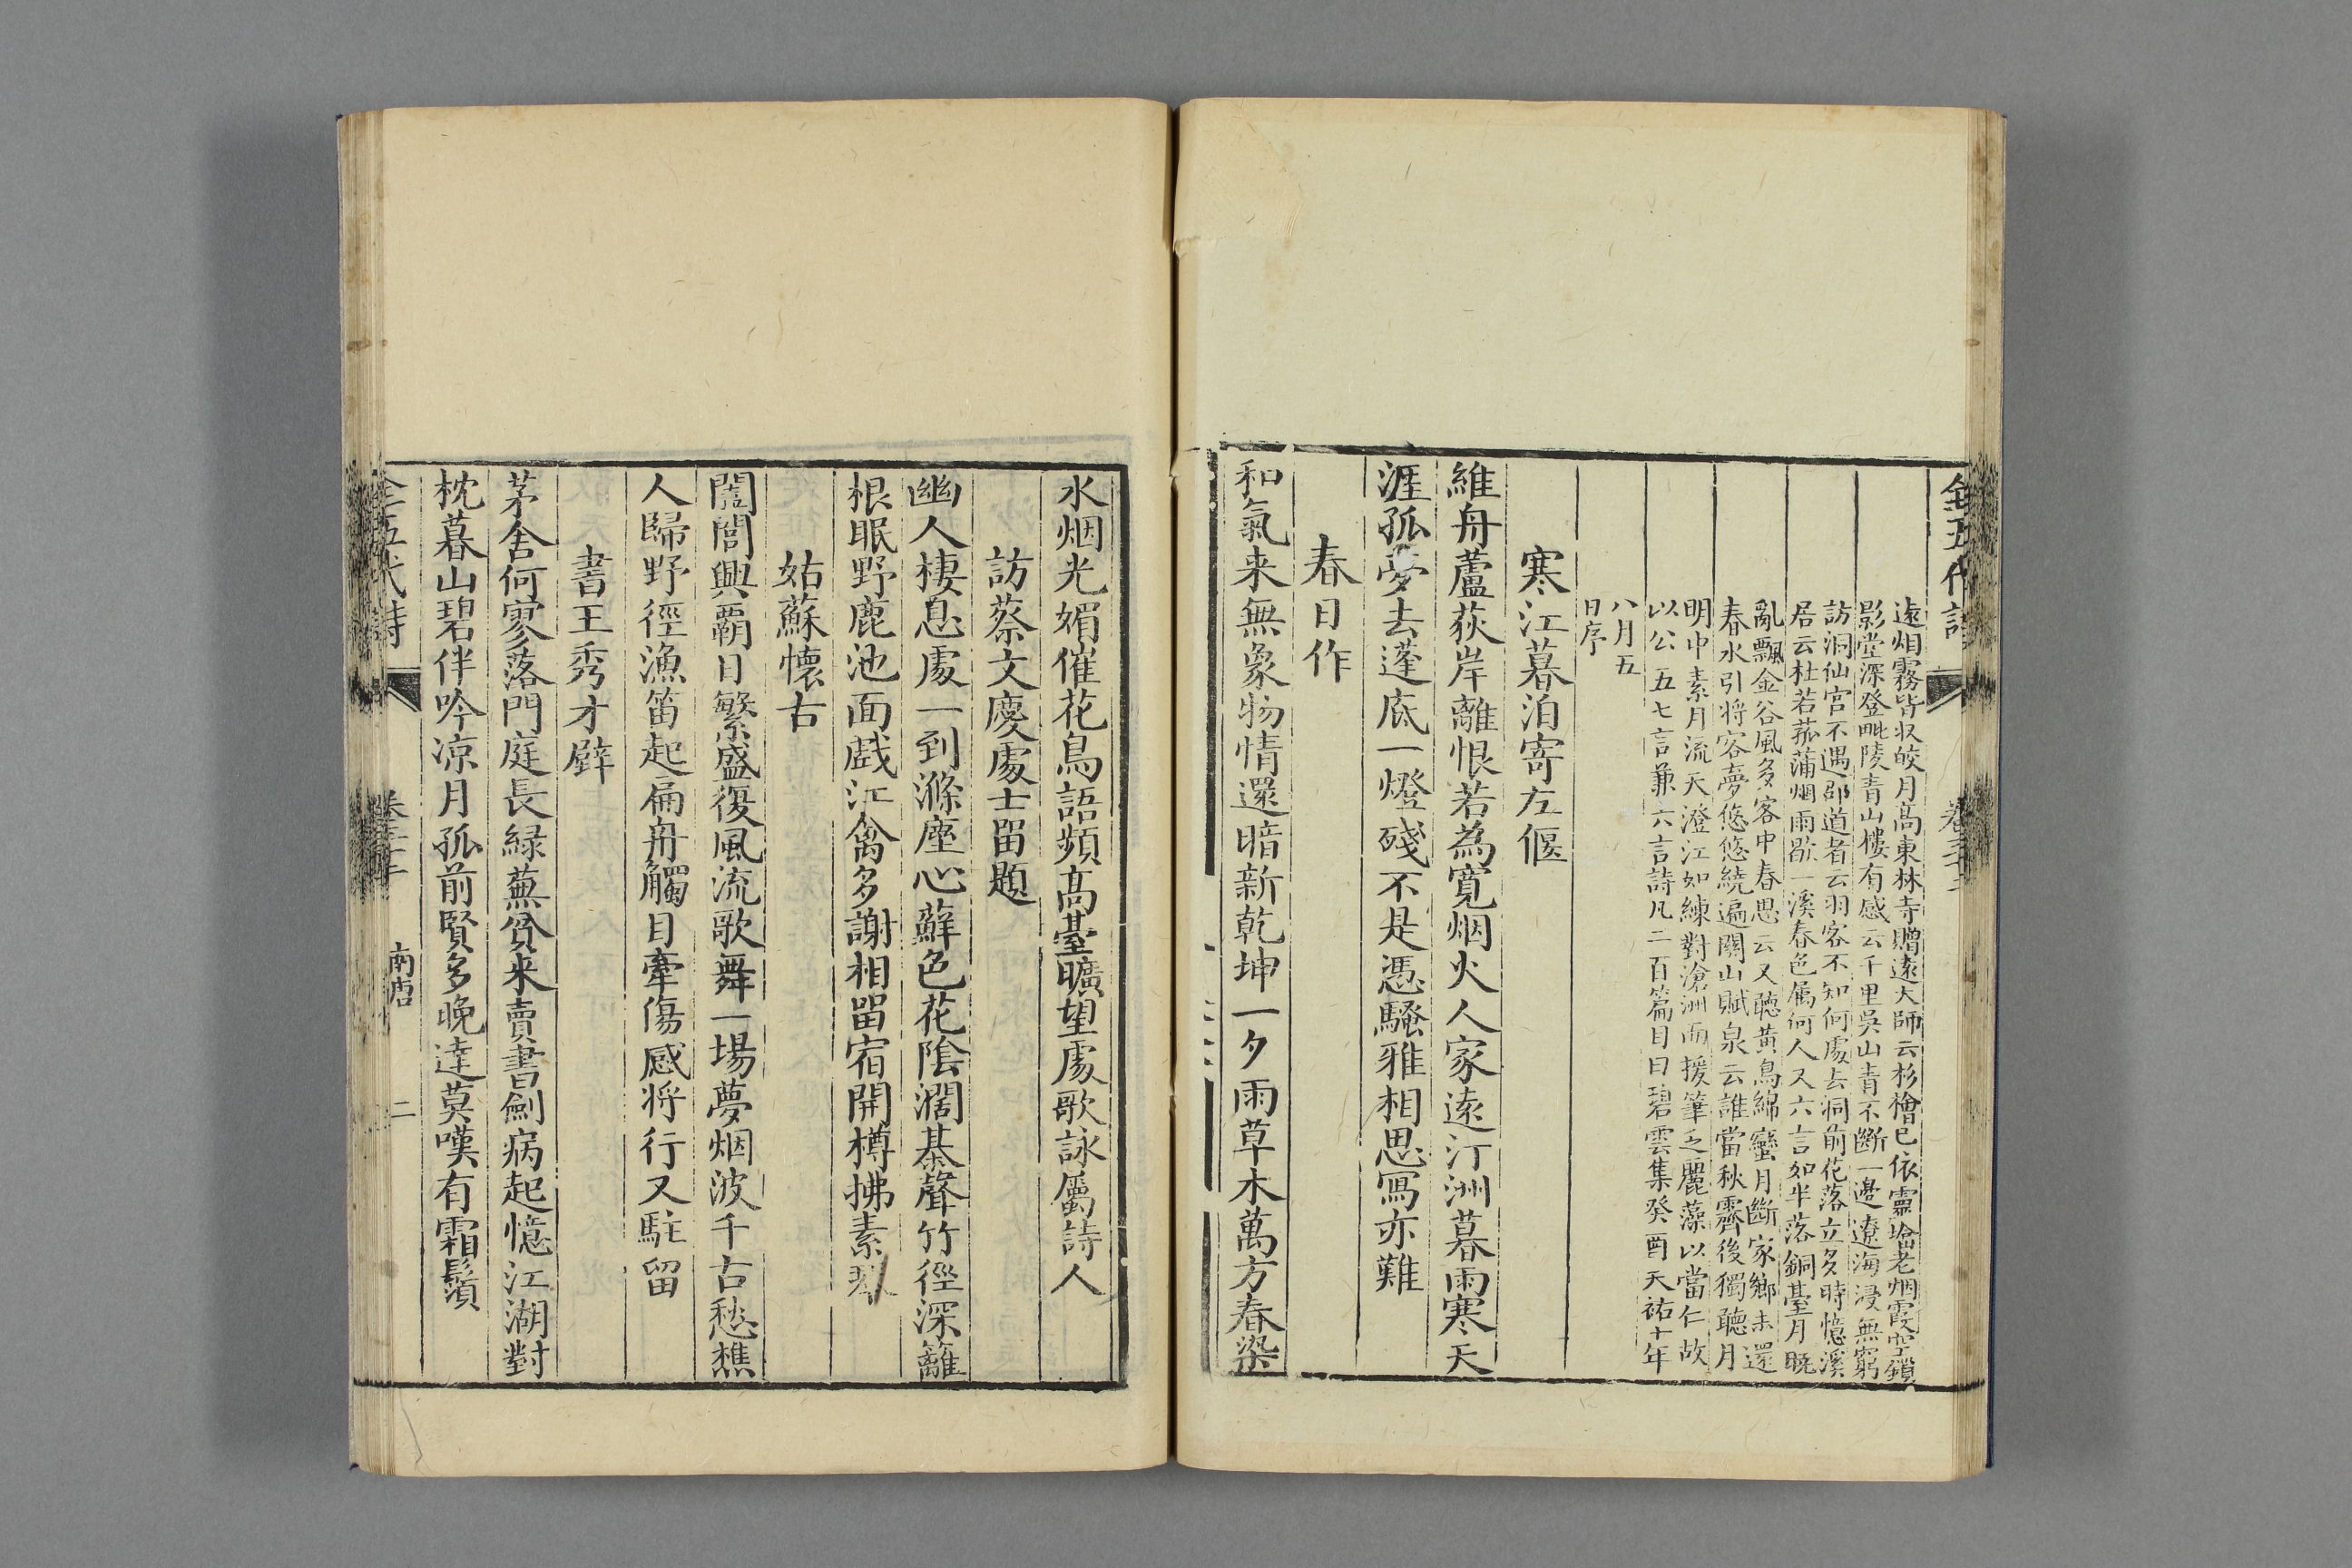 全五代詩
卷三十二
遠烟霧皆収皎月高東林寺贈遠大師云杉檜已依靈塔老烟霞空鎖
影堂深登毗陵青山樓有感云千里吳山青不斷一邊遼海浸無窮
訪洞仙宮不遇邵道者云羽客不知何處去洞前花落立多時憶溪
居云杜若菰蒲烟雨歇一溪春色属何人又六言如半落銅臺月曉
亂飄金谷風多客中春思云又聴黃鳥綿蠻月斷家鄉未還
春水引将客夢悠悠繞遍關山賦泉云誰當秋霽後獨聽月
明中素月流天澄江如練對滄洲而援筆乏麗藻以當仁故
以公五七言兼六言詩凡二百篇目曰碧雲集癸酉天祐十年
八月五
日序
寒江暮泊寄左偃
維舟蘆荻岸離恨若為寬烟火人家遠汀洲暮雨寒天
涯孤夢去蓬底一燈殘不是憑騷雅相思寫亦難
春日作
和氣来無象物情還暗新乾坤一夕雨草木萬方春染
水烟光媚催花鳥語頻高臺曠望處歌詠屬詩人
訪蔡文慶處士留題
幽人棲息處一到滌塵心蘚色花陰濶棊聲竹徑深籬
根眠野鹿池面戲江禽多謝相留宿開樽拂素琴
姑蘇懷古
闔閭興覇日繁盛復風流歌舞一場夢烟波千古愁樵
人歸野徑漁笛起扁舟觸目牽傷感将行又駐留
書王秀才壁
茅舍何寥落門庭長緑蕪貧来賣書劍病起憶江湖對
枕暮山碧伴吟凉月孤前賢多晚達莫嘆有霜鬚
全五代詩
卷三十二
南唐
二